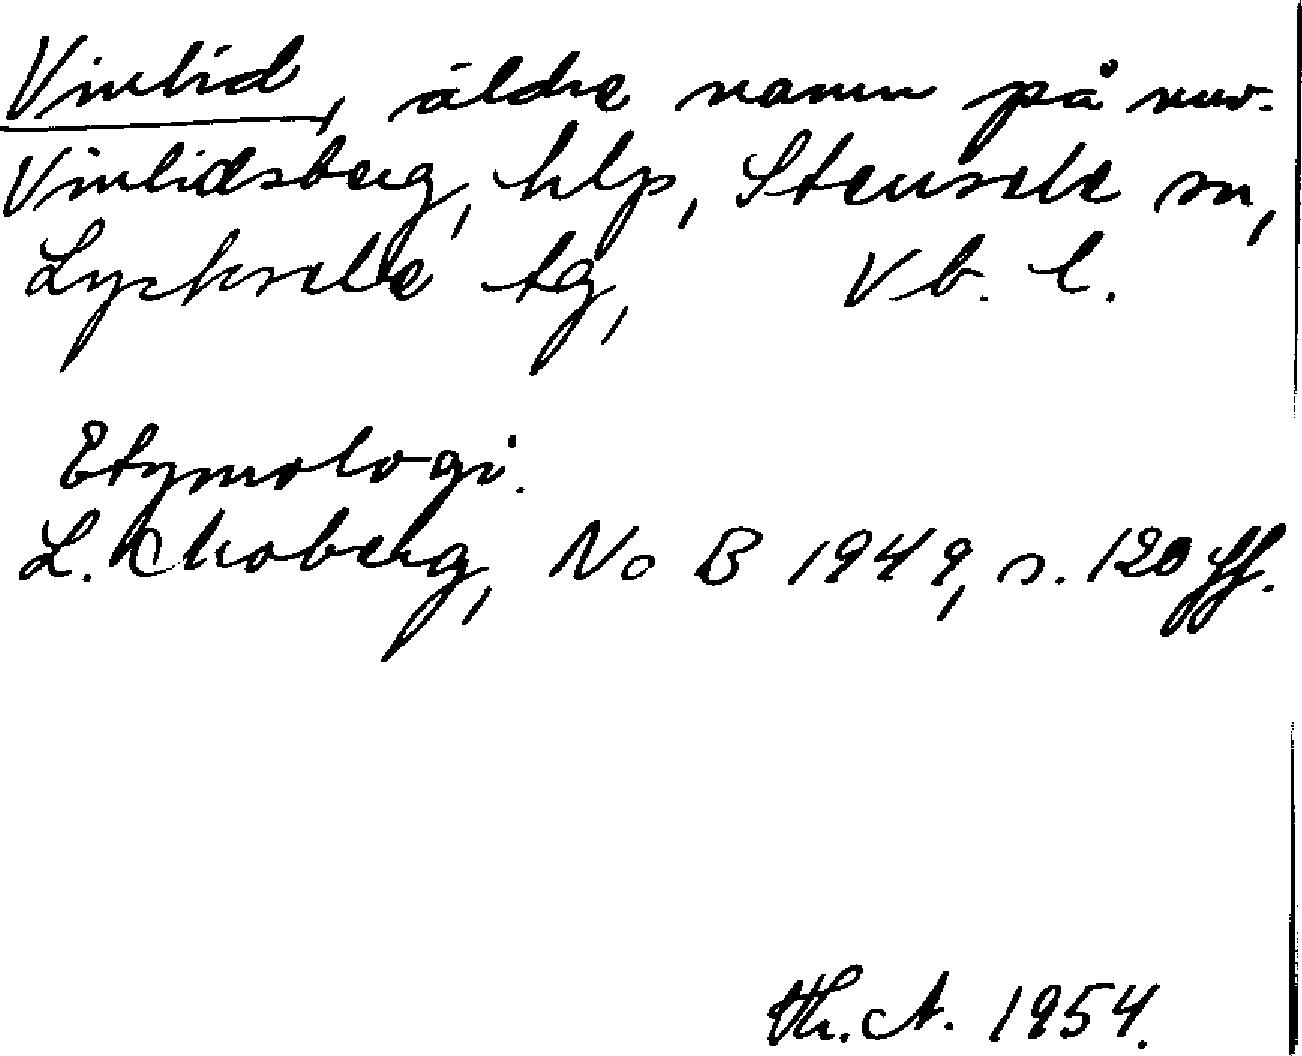 Vinlid, äldre namn på nuv.
Vinlidsberg, hlp, Stensele sn,
Lycksele tg, Vb. l.
Etymologi.
L. Moberg, NoB 1949, s. 120 ff.
Th. A. 1954.